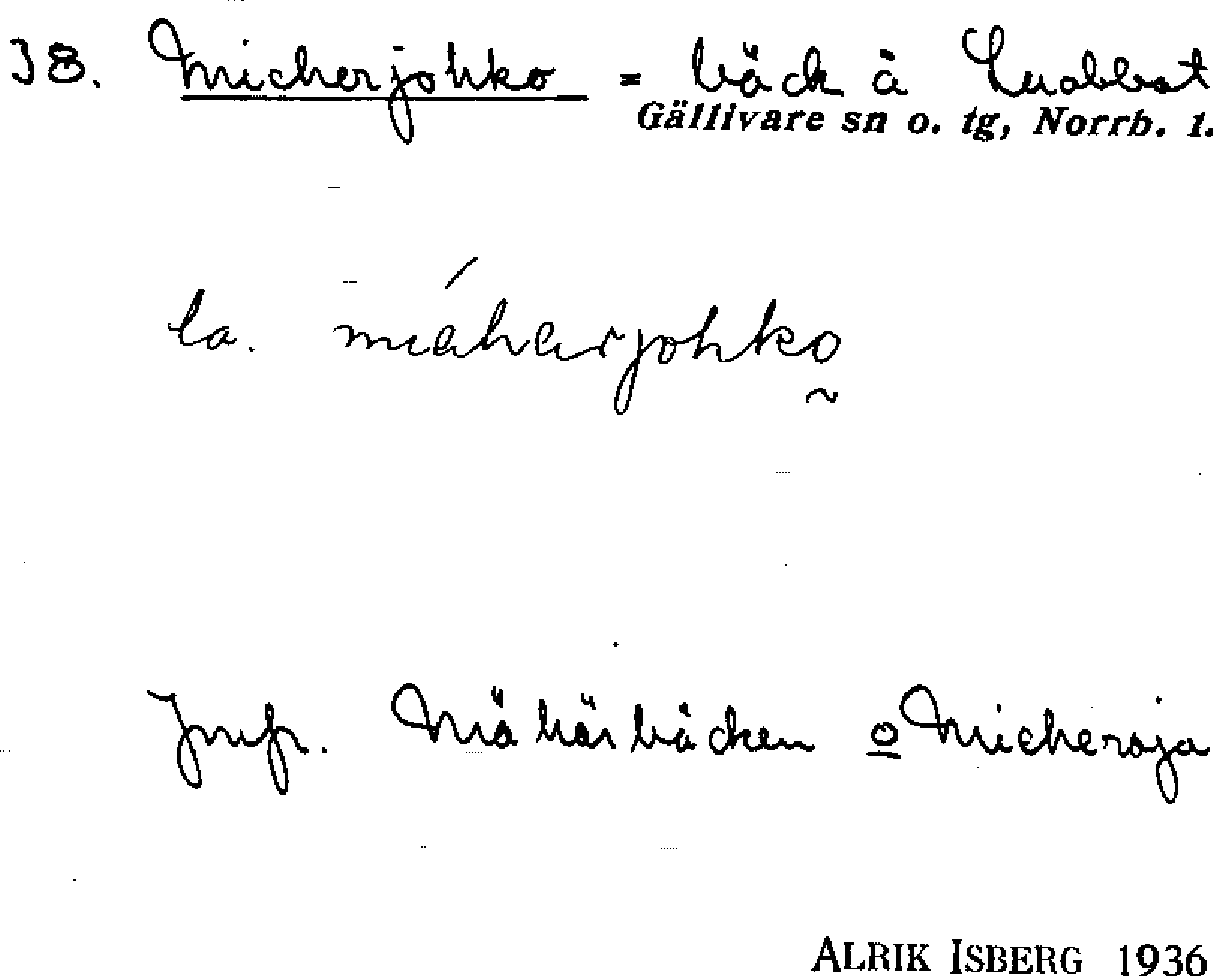 38. Micherjohko = bäck å Luobbat
Gällivare sn o. tg, Norrb. l.
la. miäharjohko
Jmfr. Miähärbäcken o Micheroja
ALRIK ISBERG 1936